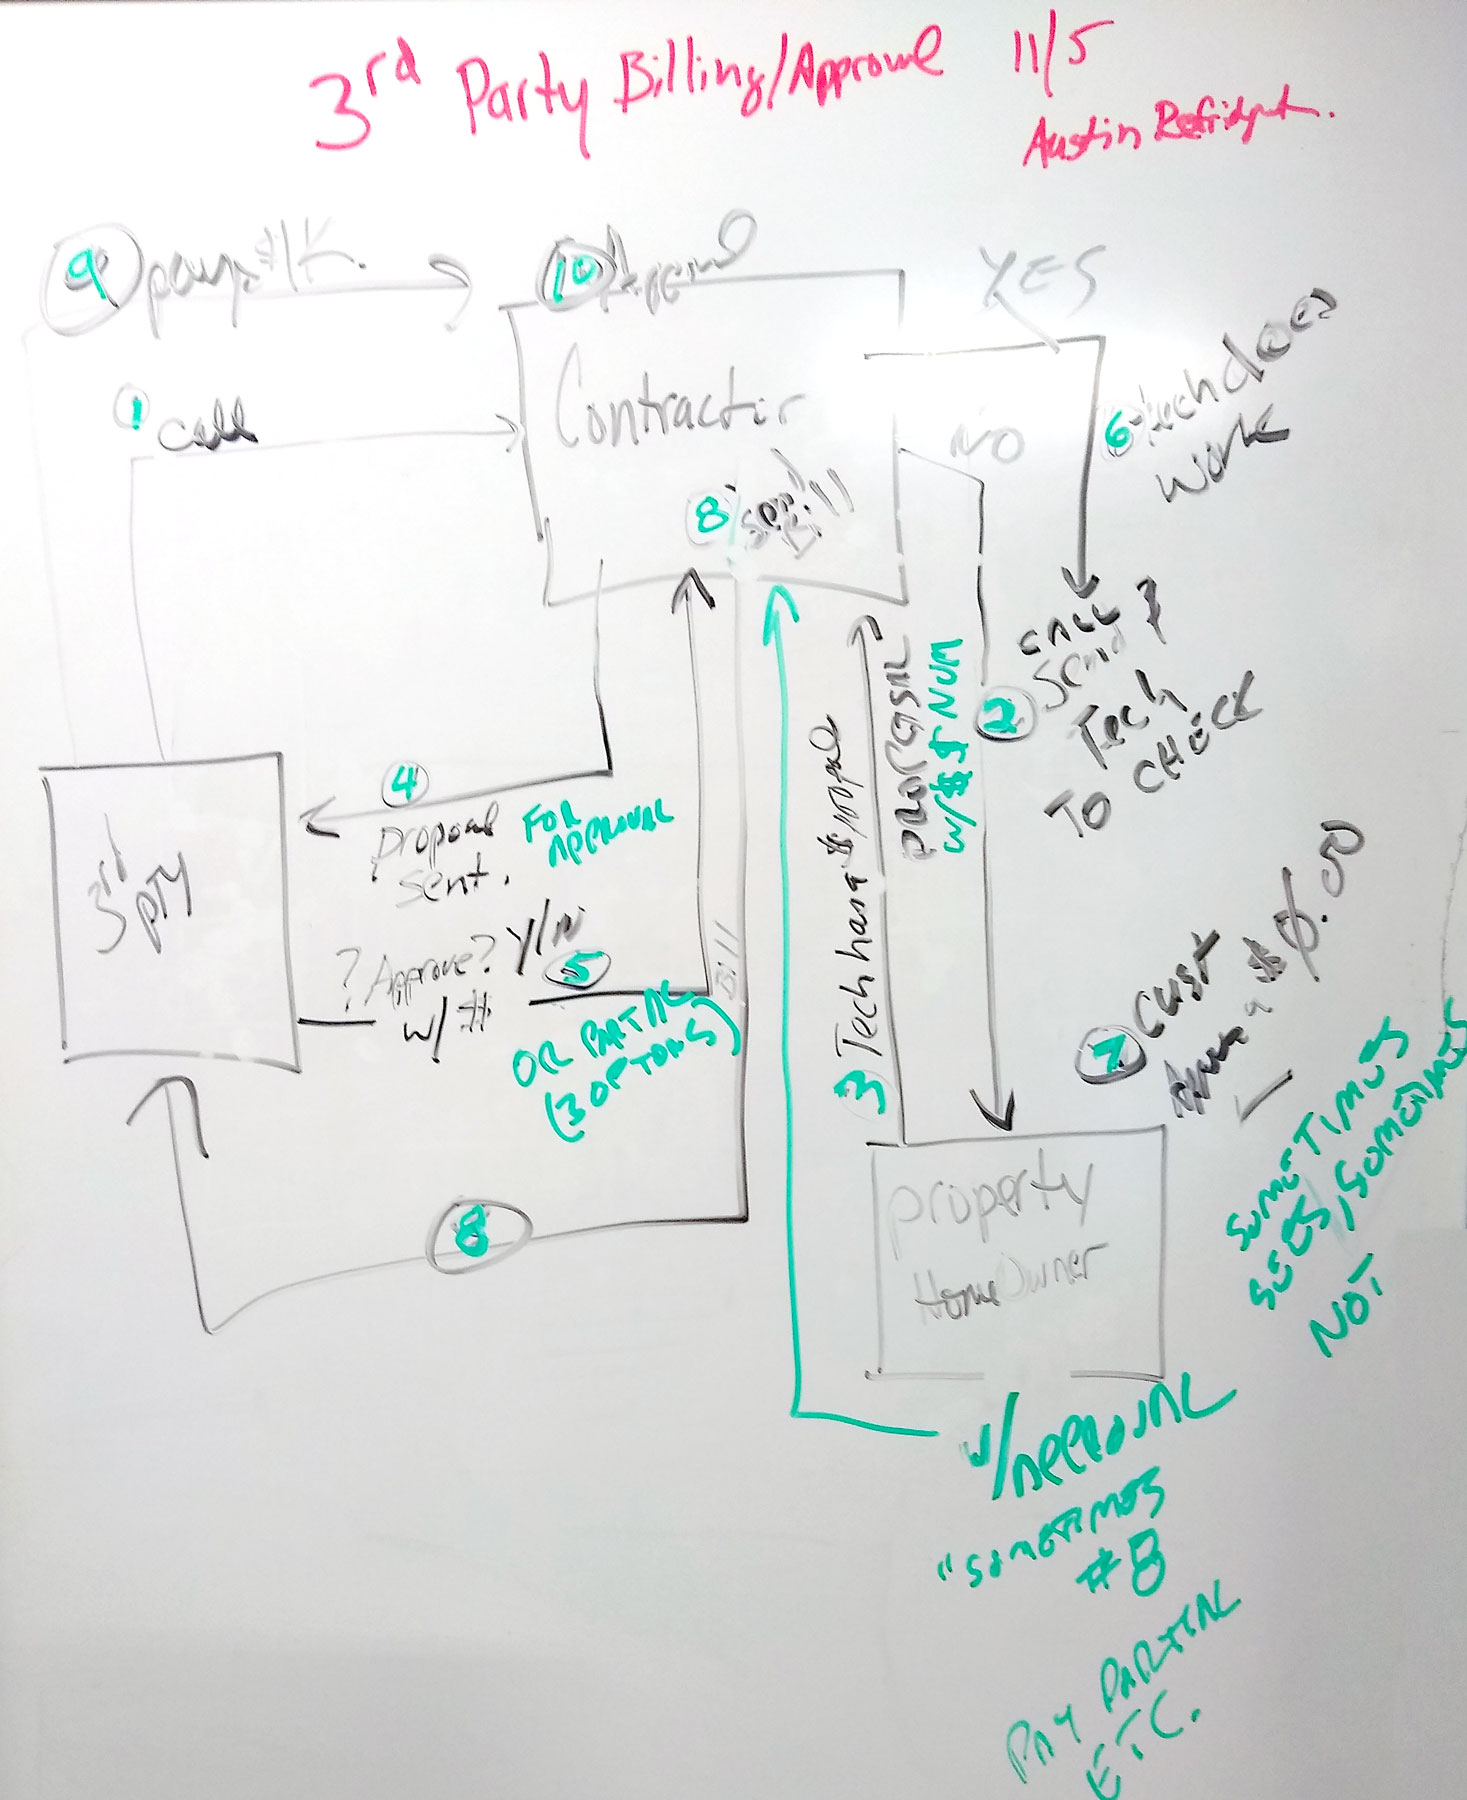 3rd Party Billing/Approval 11/5
Austin
9 pays $1K.
10 Approval
YES
1 call
Contractor
NO
6 - tech does
work
8 Send
Bill
call &
Send
2 Tech
TO CHECK
4
proposal
sent.
FOR
APPROVAL
3rd
PTY
? Approve? Y/N
w/#
5
OR PARTIAL
(3 OPTIONS)
Bill
3 Tech has $
PROPOSAL
w/$$$ NUM
7 Cust
$0.00
SOMETIMES
SEES, SOMETIMES
NOT
8
property
HomeOwner
w/APPROVAL
"SOMETIMES
#8
PAY PARTIAL
ETC.